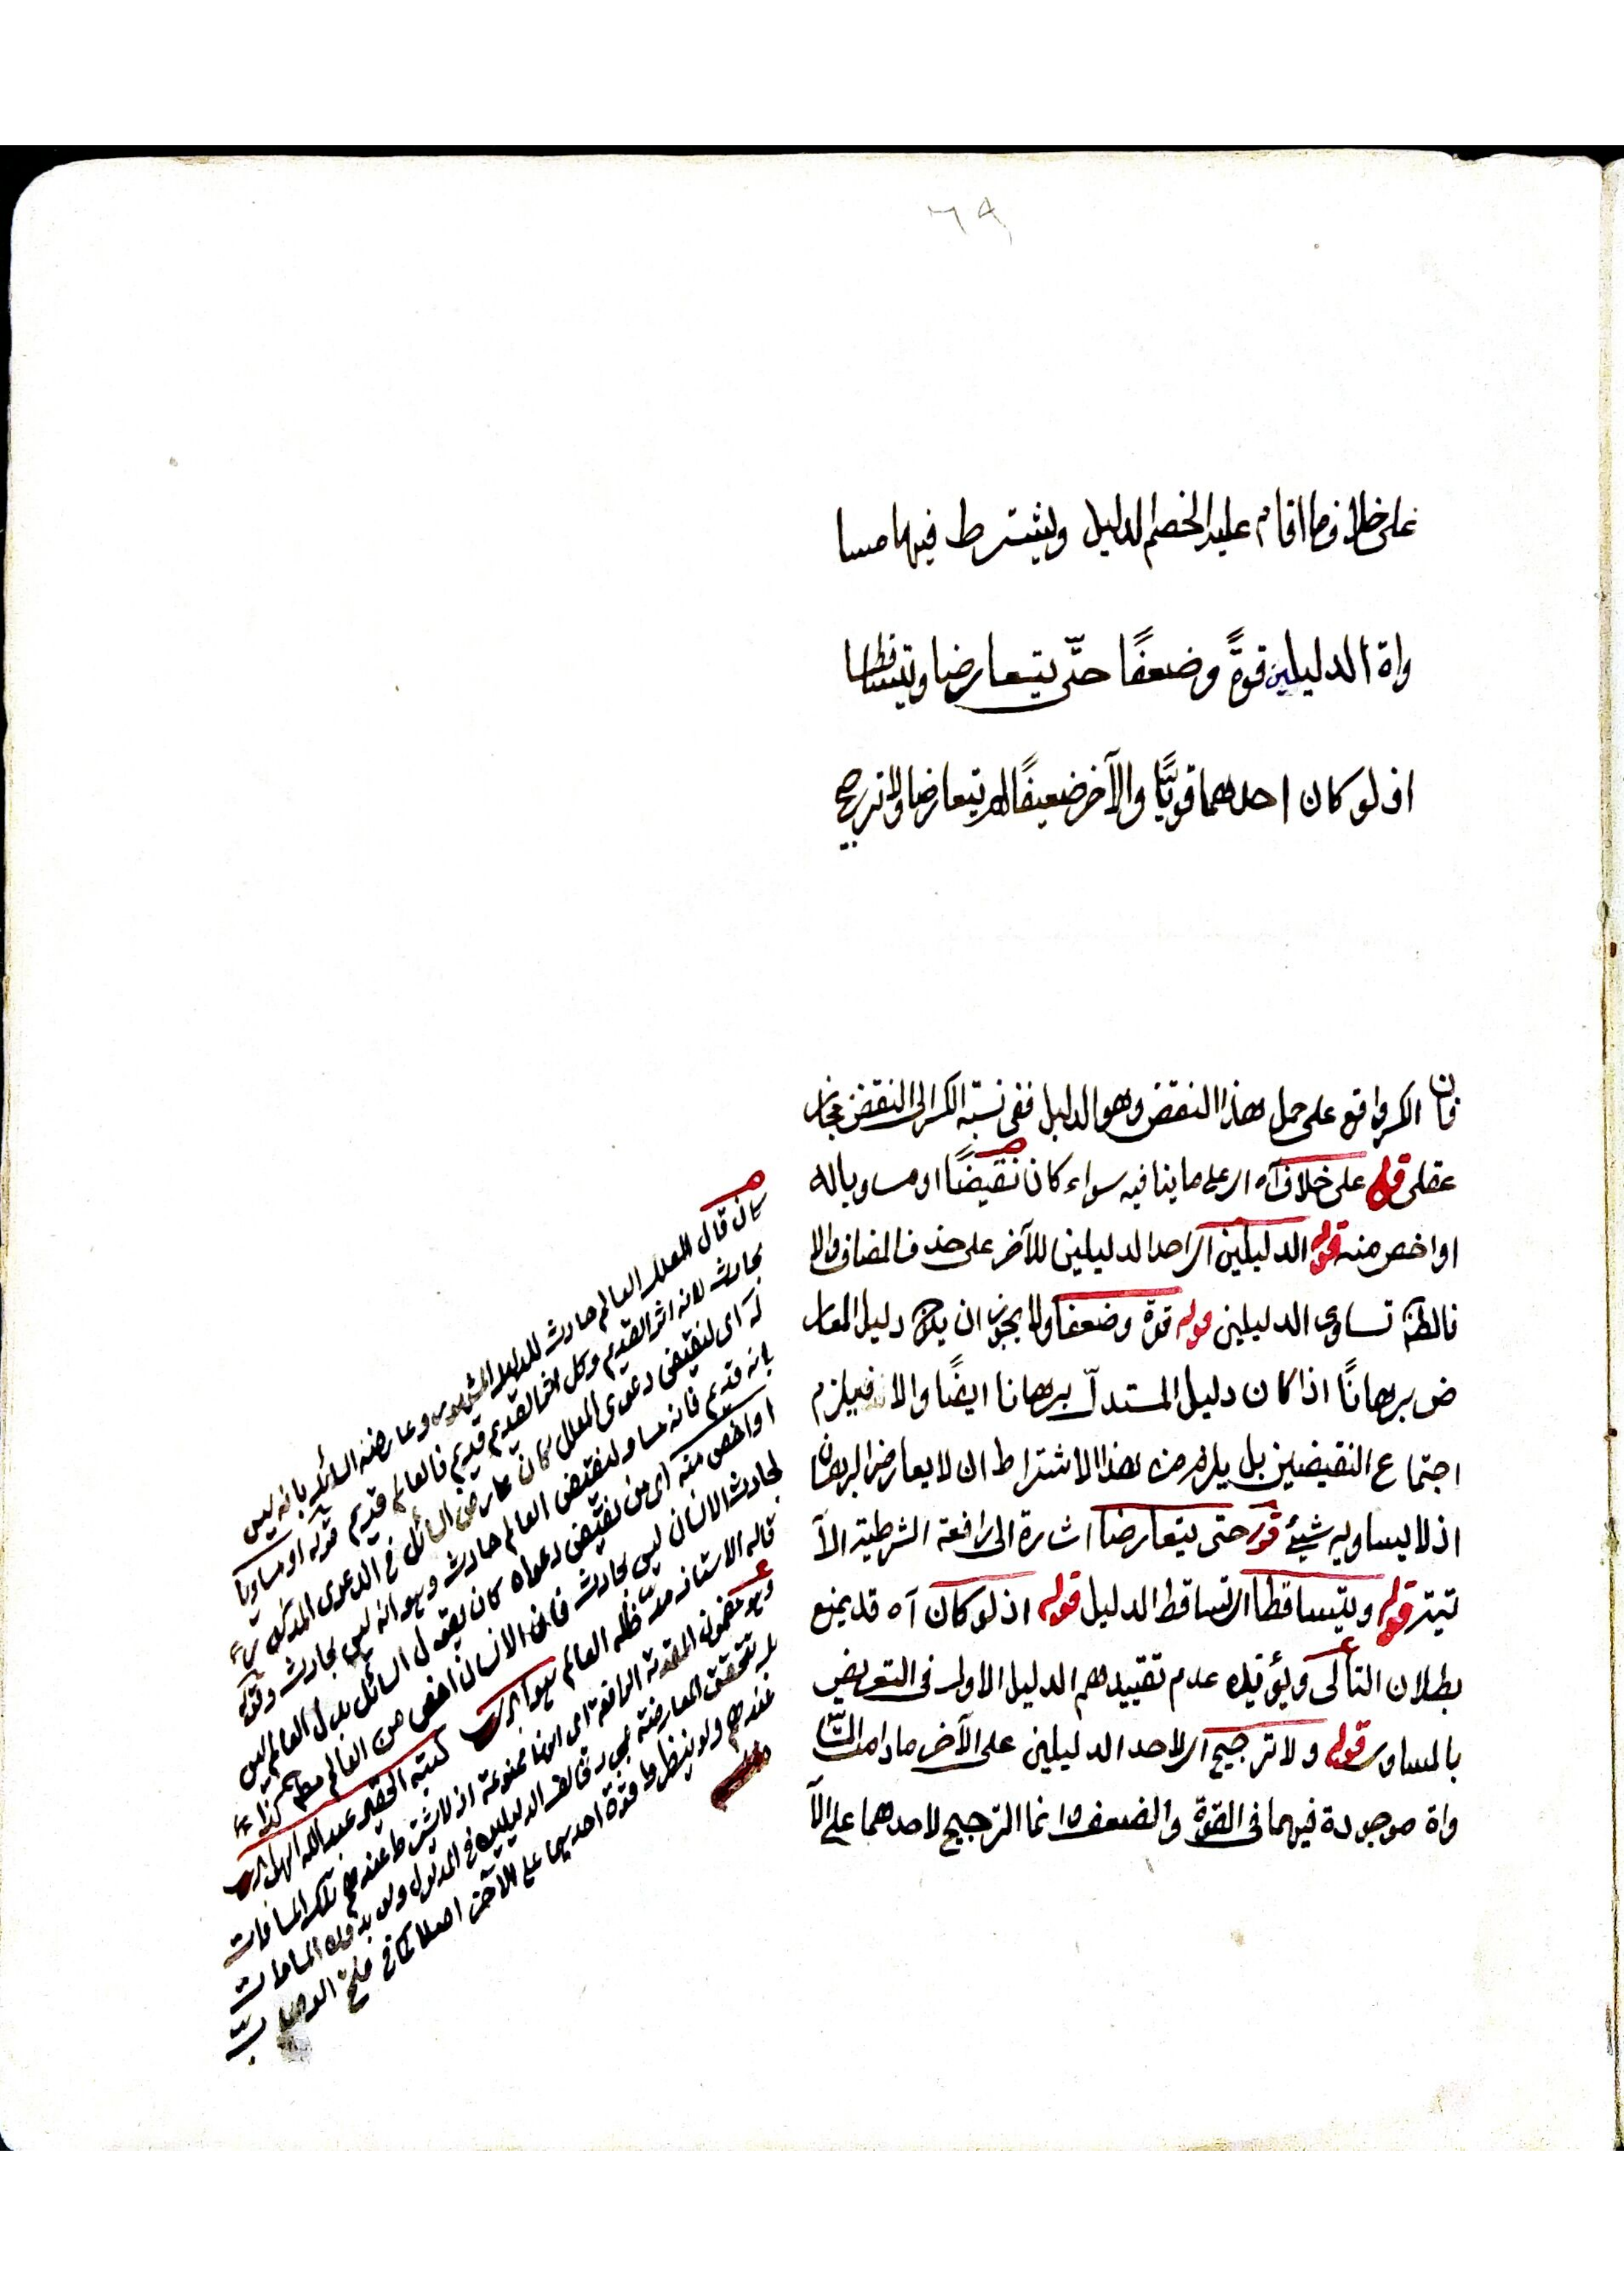 ٦٩
على خلاف ما اقام عليه الخصم الدليل ويشترط فيها مسا
واة الدليلين قوةً وضعفًا حتّى يتعارضا ويتساقطا
اذ لو كان احدهما قويًّا والآخر ضعيفًا لم يتعارضا ولا ترجيح
فان الكسر واقع على حمل هذا النقض وهو الدليل ففى نسبة الكسر الى النقض مجاز
عقلى قوله على خلاف آه اى على ما ينافيه سواء كان نقيضًا او مساويا له
او اخص منه قوله الدليلين اى احد الدليلين للآخر على حذف المضاف والا
فالظ تساوى الدليلين قوله قوة وضعفا ولا يجوز ان يكون دليل المعار
ض برهانًا اذا كان دليل المستدلّ برهانا ايضًا والا فيلزم
اجتماع النقيضين بل يلزم من هذا الاشتراط ان لا يعارض البرهان
اذ لا يساويه شيئ قوله حتى يتعارضا اشارة الى رافعة الشرطية الآ
تية قوله ويتساقطا اى تساقط الدليل قوله اذ لو كان آه قد يمنع
بطلان التالى ويؤيده عدم تقييدهم الدليل الاول فى التعريض
بالمساوى قوله ولا ترجيح اى لاحد الدليلين على الآخر ما دامت المسا
واة موجودة فيهما فى القوة والضعف وانما الترجيح لاحدهما على الآ
كان قال المعلل العالم حادث للدليل المشهور وعارضه السائل بانه ليس
بحادث لانه اثر القديم وكل اثر القديم قديم فالعالم قديم قوله او مساويا
له اى لنقيض دعوى المعلل كان عارض السائل فى الدعوى المذكورة
بانه قديم فانه مساو لنقيض العالم حادث وهو انه ليس بحادث وقوله
او اخص منه اى من نقيض دعواه كان يقول السائل بدل العالم ليس
بحادث الانسان ليس بحادث فان الانسان اخص من العالم كذا
قاله الاستاذ مد ظله العالى كتبه الحقير عبد الله
وهو مضمون المقدمة الرافعة اى انها ممنوعة اذ لا يشترط عندهم تلك المساوات
بل تتحقق المعارضة بمجرد تخالف الدليلين فى المدلول ولو بدون المساوات
عندهم ولو ينظر ما قوة احديهما على الآخر اصلا كما فى فتح